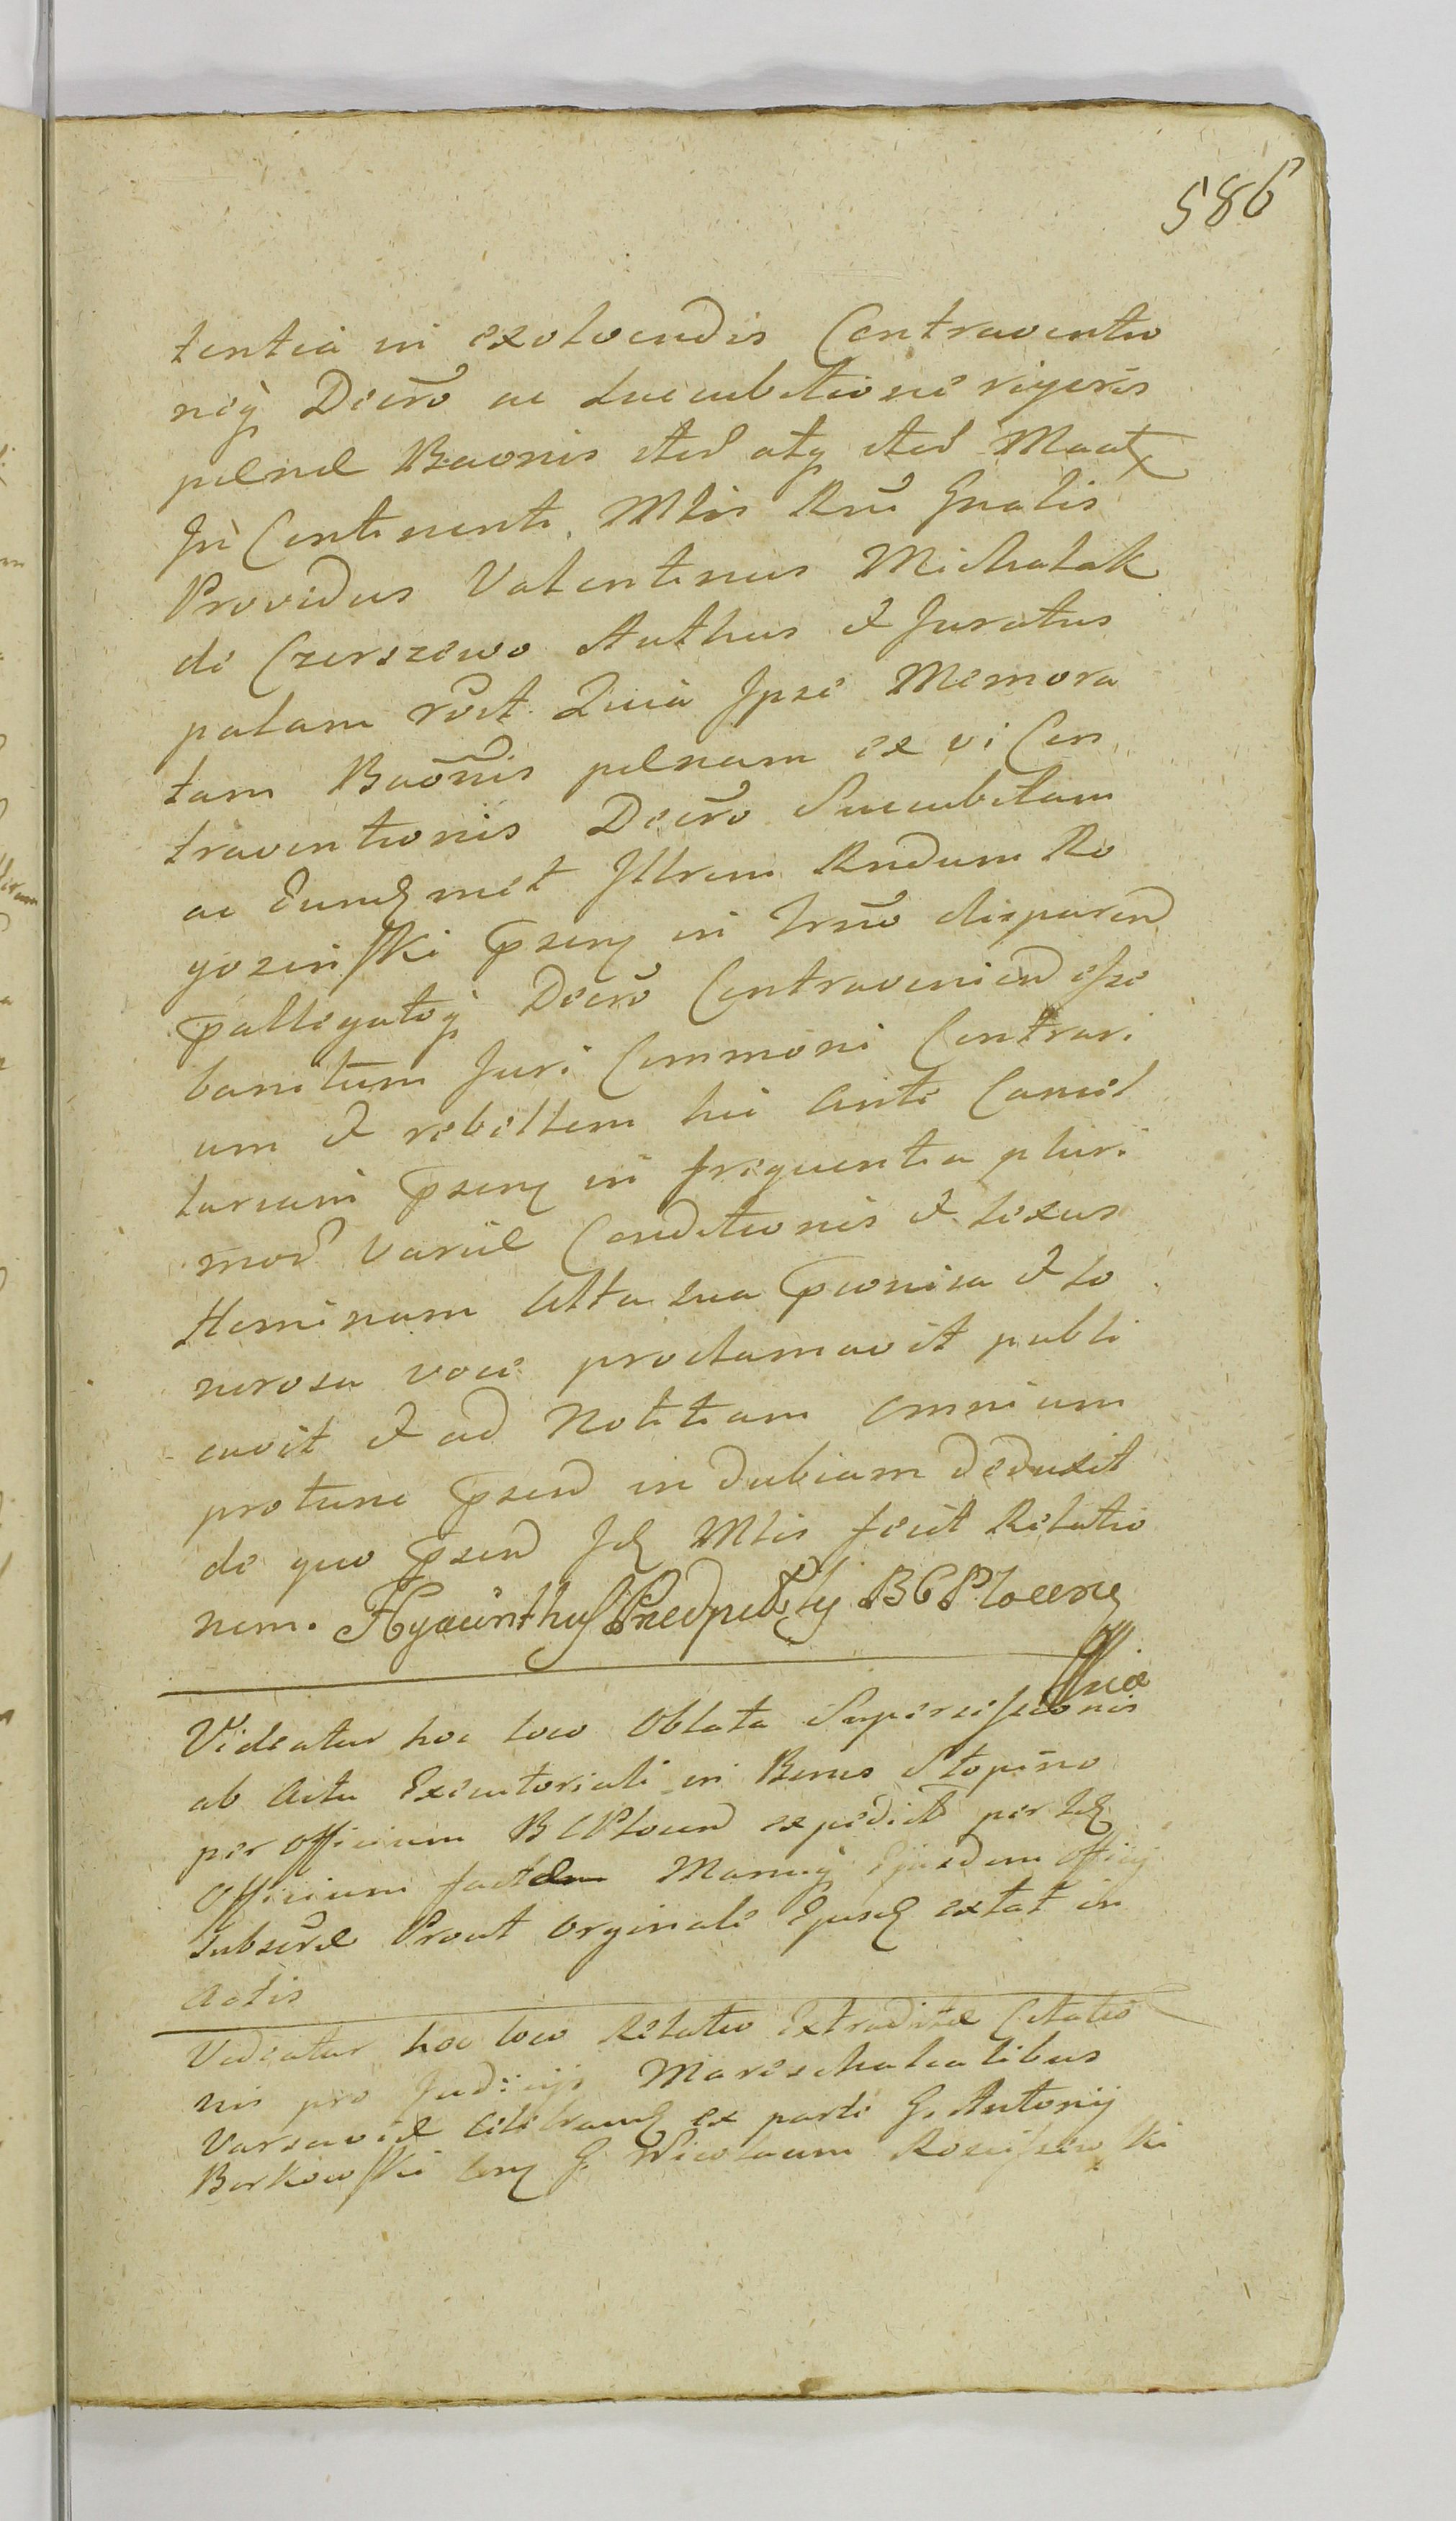 586
tentia in exolvendis Contraventio
neq̀ Decr̃o ac Succubitione rigoris
pænæ Baonis ited atq ited Maat
In Continenti. Mtis Rni Gnalis
Providus Valentinus Michalak
de Czerszewo Authus et Juratus
palam rõit. Quia Ipse Memora
tam Baõnis pænam ex vi Con
traventionis Decr̃o Succubitam
ac Eundmet Illrem Rndum Ro
gozinski psenq in Trno disparend
pallegatoq̀ Decrõ Contraveniend esse
banitum Juri Commoni Contrari
um et rebellem hic ante Cancel
lariam psenq in frequentia pluri
mod variæ Conditionis et sexus
Hominum Alta sua pconisa et so
norosa voce proclamavit publi
cavit et ad Notitiam omnium
protunc psend in dubiam deduxit
de quo psend Id Mtis fecit Relatio
nem. Hyacinthus BCPlocenq
Videatur hoc loco Oblata Supercessionis
ab Actu Executoriali in Bonis Slopino
per Officium BCPlocend expedit per id
Officium factæ Manuq̀ Ejusdem Officij
subscræ Prout Orginale Ejusd extat in
Actis
Videatur hoc loco Relatio Extraditæ Citatio
nis pro Judicijs Mareschalcalibus
Varsaviæ Celebrand ex parte G. Antonij
Borkowski Conq G. Nicolaum Rosciszewski